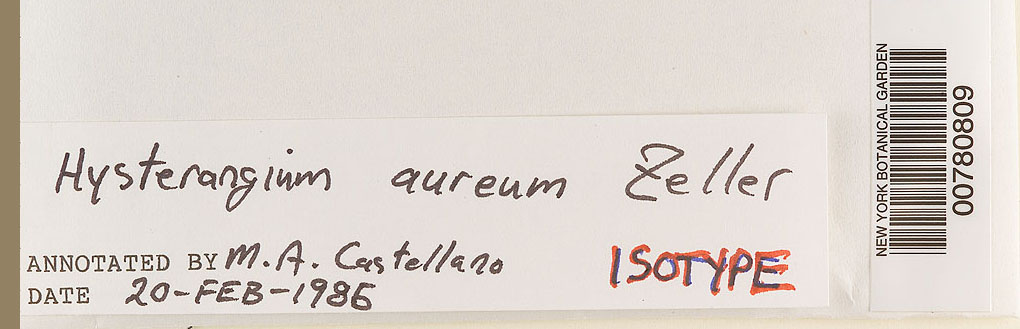 Hysterangium aureum Zeller
ANNOTATED BY M. A. Castellano
DATE 20-FEB-1986
ISOTYPE
NEW YORK BOTANICAL GARDEN
00780809